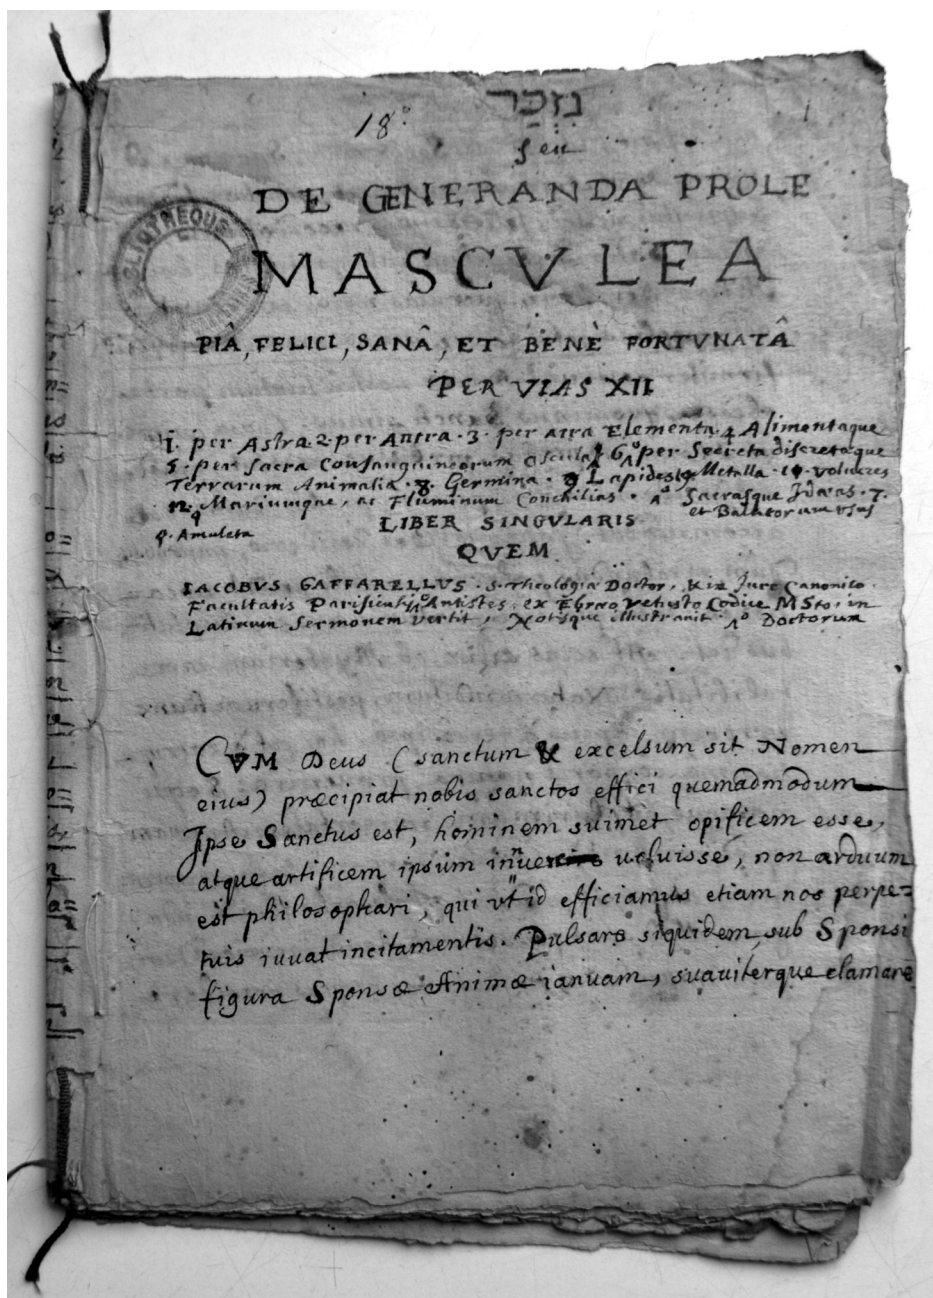 נִזְכַּר
18.º
seu
DE GENERANDA PROLE
MASCVLEA
PIÂ, FELICI, SANÂ, ET BENÈ FORTVNATÂ
PER VIAS XII
1. per Astra. 2. per Antra. 3. per atra Elementa. 4 Alimentaque
5. per sacra Consanguineorum oscula 6. per Secreta discretaque
Terrarum Animalia. 8. Germina. 9 Lapides Metalla. volucres
Mariumque, ac Fluminum Conchilias. Sacrasque Idæas. 7.
et Balatorum usus
9. Amuleta
LIBER SINGVLARIS
QVEM
IACOBVS GAFFARELLVS. S. Theologiæ Doctor, & in Jure Canonico
Facultatis Parisiensis Antistes, ex Ebræo vetusto Codice MSto, in
Latinum Sermonem vertit, Notisque illustravit. Doctorum
BIBLIOTHEQUE
CVM Deus (sanctum & excelsum sit Nomen
eius) præcipiat nobis sanctos effici quemadmodum
Ipse Sanctus est, hominem suimet opificem esse,
atque artificem ipsum voluisse, non arduum
est philosophari, qui vt id efficiamus etiam nos perpe=
tuis iuuat incitamentis. Pulsare siquidem sub Sponsi
figura Sponsæ Animæ ianuam, suauiterque clamare